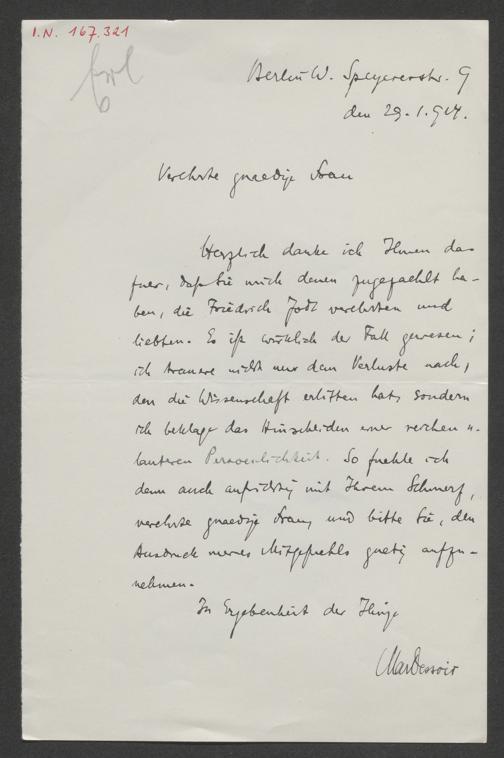 I.N. 167.321
Berlin W. Speyererstr. 9
den 29.1.914.
Verehrte gnaedige Frau
Herzlich danke ich Ihnen da-
fuer, daß Sie mich denen zugezaehlt ha-
ben, die Friedrich Jodl verehrten und
liebten. Es ist wirklich der Fall gewesen;
ich trauere nicht nur dem Verluste nach,
den die Wissenschaft erlitten hat, sondern
ich beklage das Hinscheiden einer reichen u.
lauteren Persoenlichkeit. So fuehle ich
denn auch aufrichtig mit Ihrem Schmerz,
verehrte gnaedige Frau, und bitte Sie, den
Ausdruck meines Mitgefuehls guetig aufzu-
nehmen.
In Ergebenheit der Ihrige
Max Dessoir